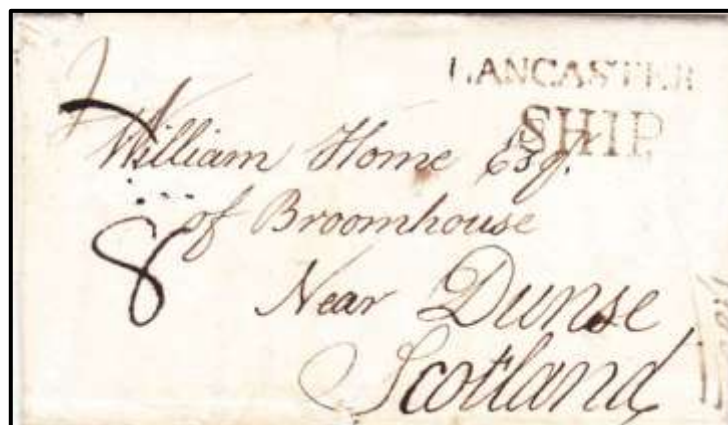 LANCASTER
SHIP
William Home Esqr.
of Broomhouse
8
Near Dunse
Scotland